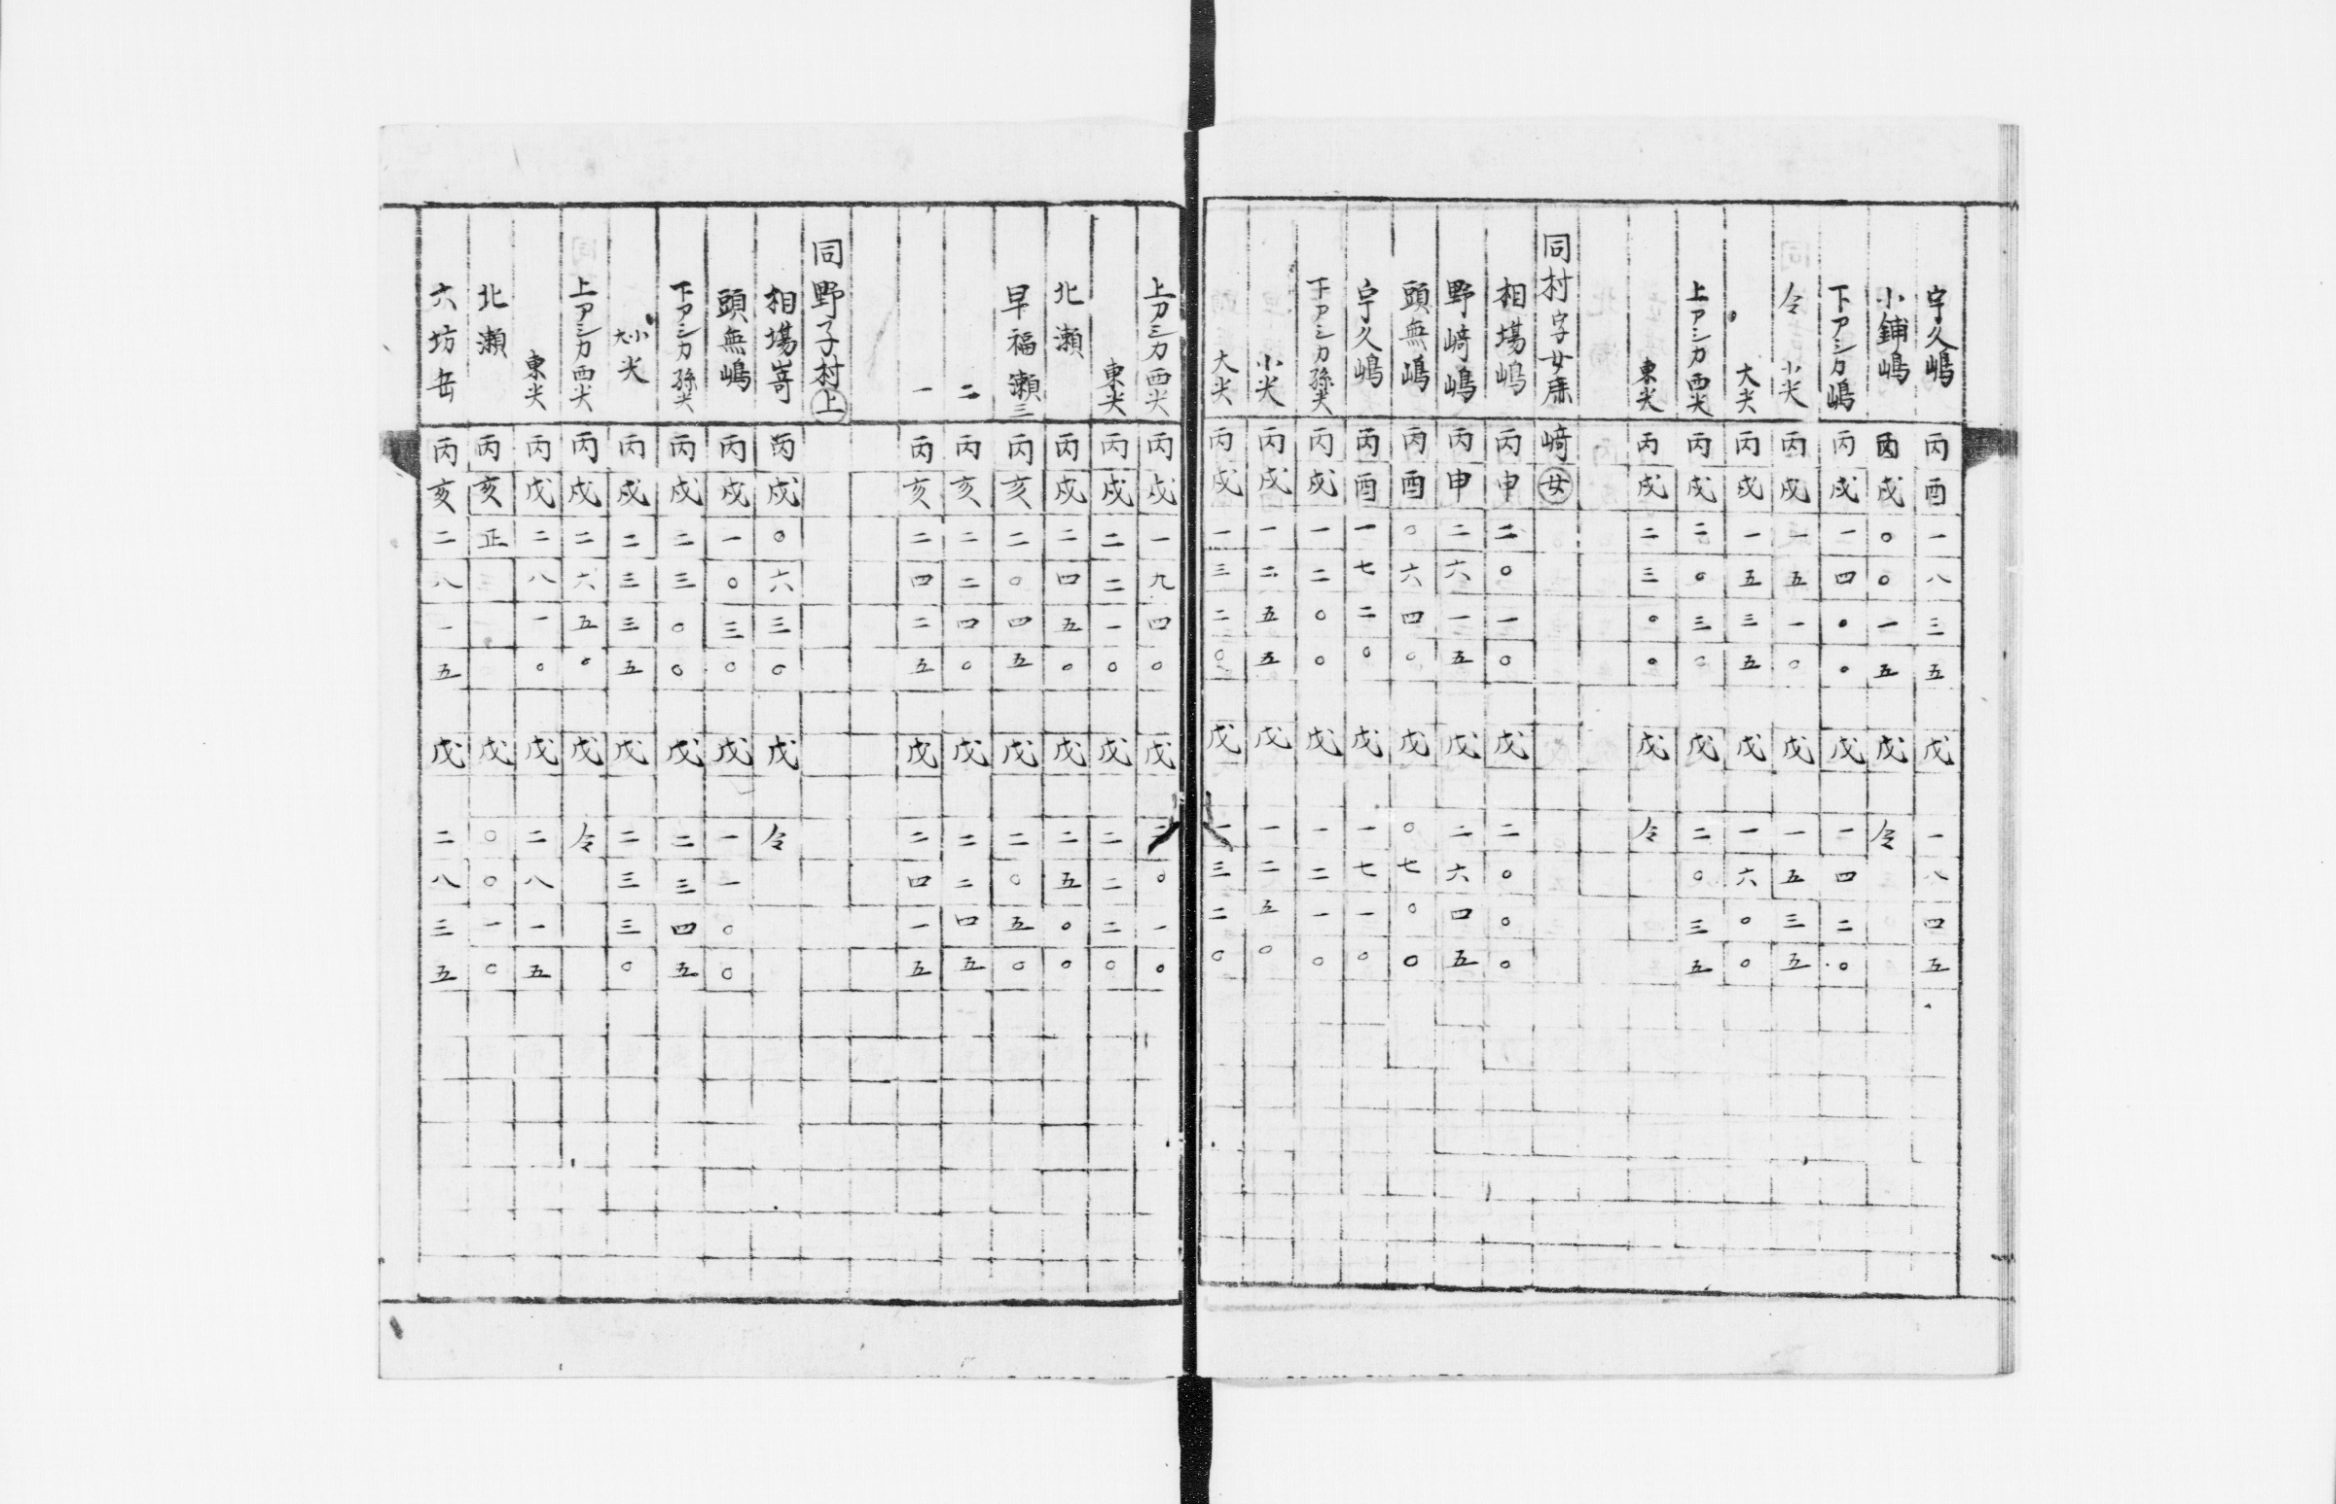 宇久嶋 丙酉一八三五 戊 一八四五
小鋪嶋 丙戌〇〇一五 戊 仝
下アシカ嶋 丙戌一四〇〇 戊 一四二〇
仝 小尖 丙戌一五一〇 戊 一五三五
大尖 丙戌一五三五 戊 一六〇〇
上アシカ西尖 丙戌二〇三〇 戊 二〇三五
東尖 丙戌二三〇〇 戊 仝
同村字女鹿﨑㊛
相場嶋 丙申二〇一〇 戊 二〇〇〇
野﨑嶋 丙申二六一五 戊 二六四五
頭無嶋 丙酉〇六四〇 戊 〇七〇〇
宇久嶋 丙酉一七二〇 戊 一七一〇
下アシカ孫尖 丙戌一二〇〇 戊 一二一〇
小尖 丙戌一二五五 戊 一二五〇
大尖 丙戌一三二〇 戊 一三二〇
上アシカ西尖 丙戌一九四〇 戊 二〇一〇
東尖 丙戌二二一〇 戊 二二二〇
北瀬 丙戌二四五〇 戊 二五〇〇
早福瀬三 丙亥二〇四五 戊 二〇五〇
二 丙亥二二四〇 戊 二二四五
一 丙亥二四二五 戊 二四一五
同野子村㊤
相場嵜 丙戌〇六三〇 戊 仝
頭無嶋 丙戌一〇三〇 戊 一一〇〇
下アシカ孫尖 丙戌二三〇〇 戊 二三四五
大小尖 丙戌二三三五 戊 二三三〇
上アシカ西尖 丙戌二六五〇 戊 仝
東尖 丙戌二八一〇 戊 二八一五
北瀬 丙亥正 戊 〇〇一〇
六坊岳 丙亥二八一五 戊 二八三五